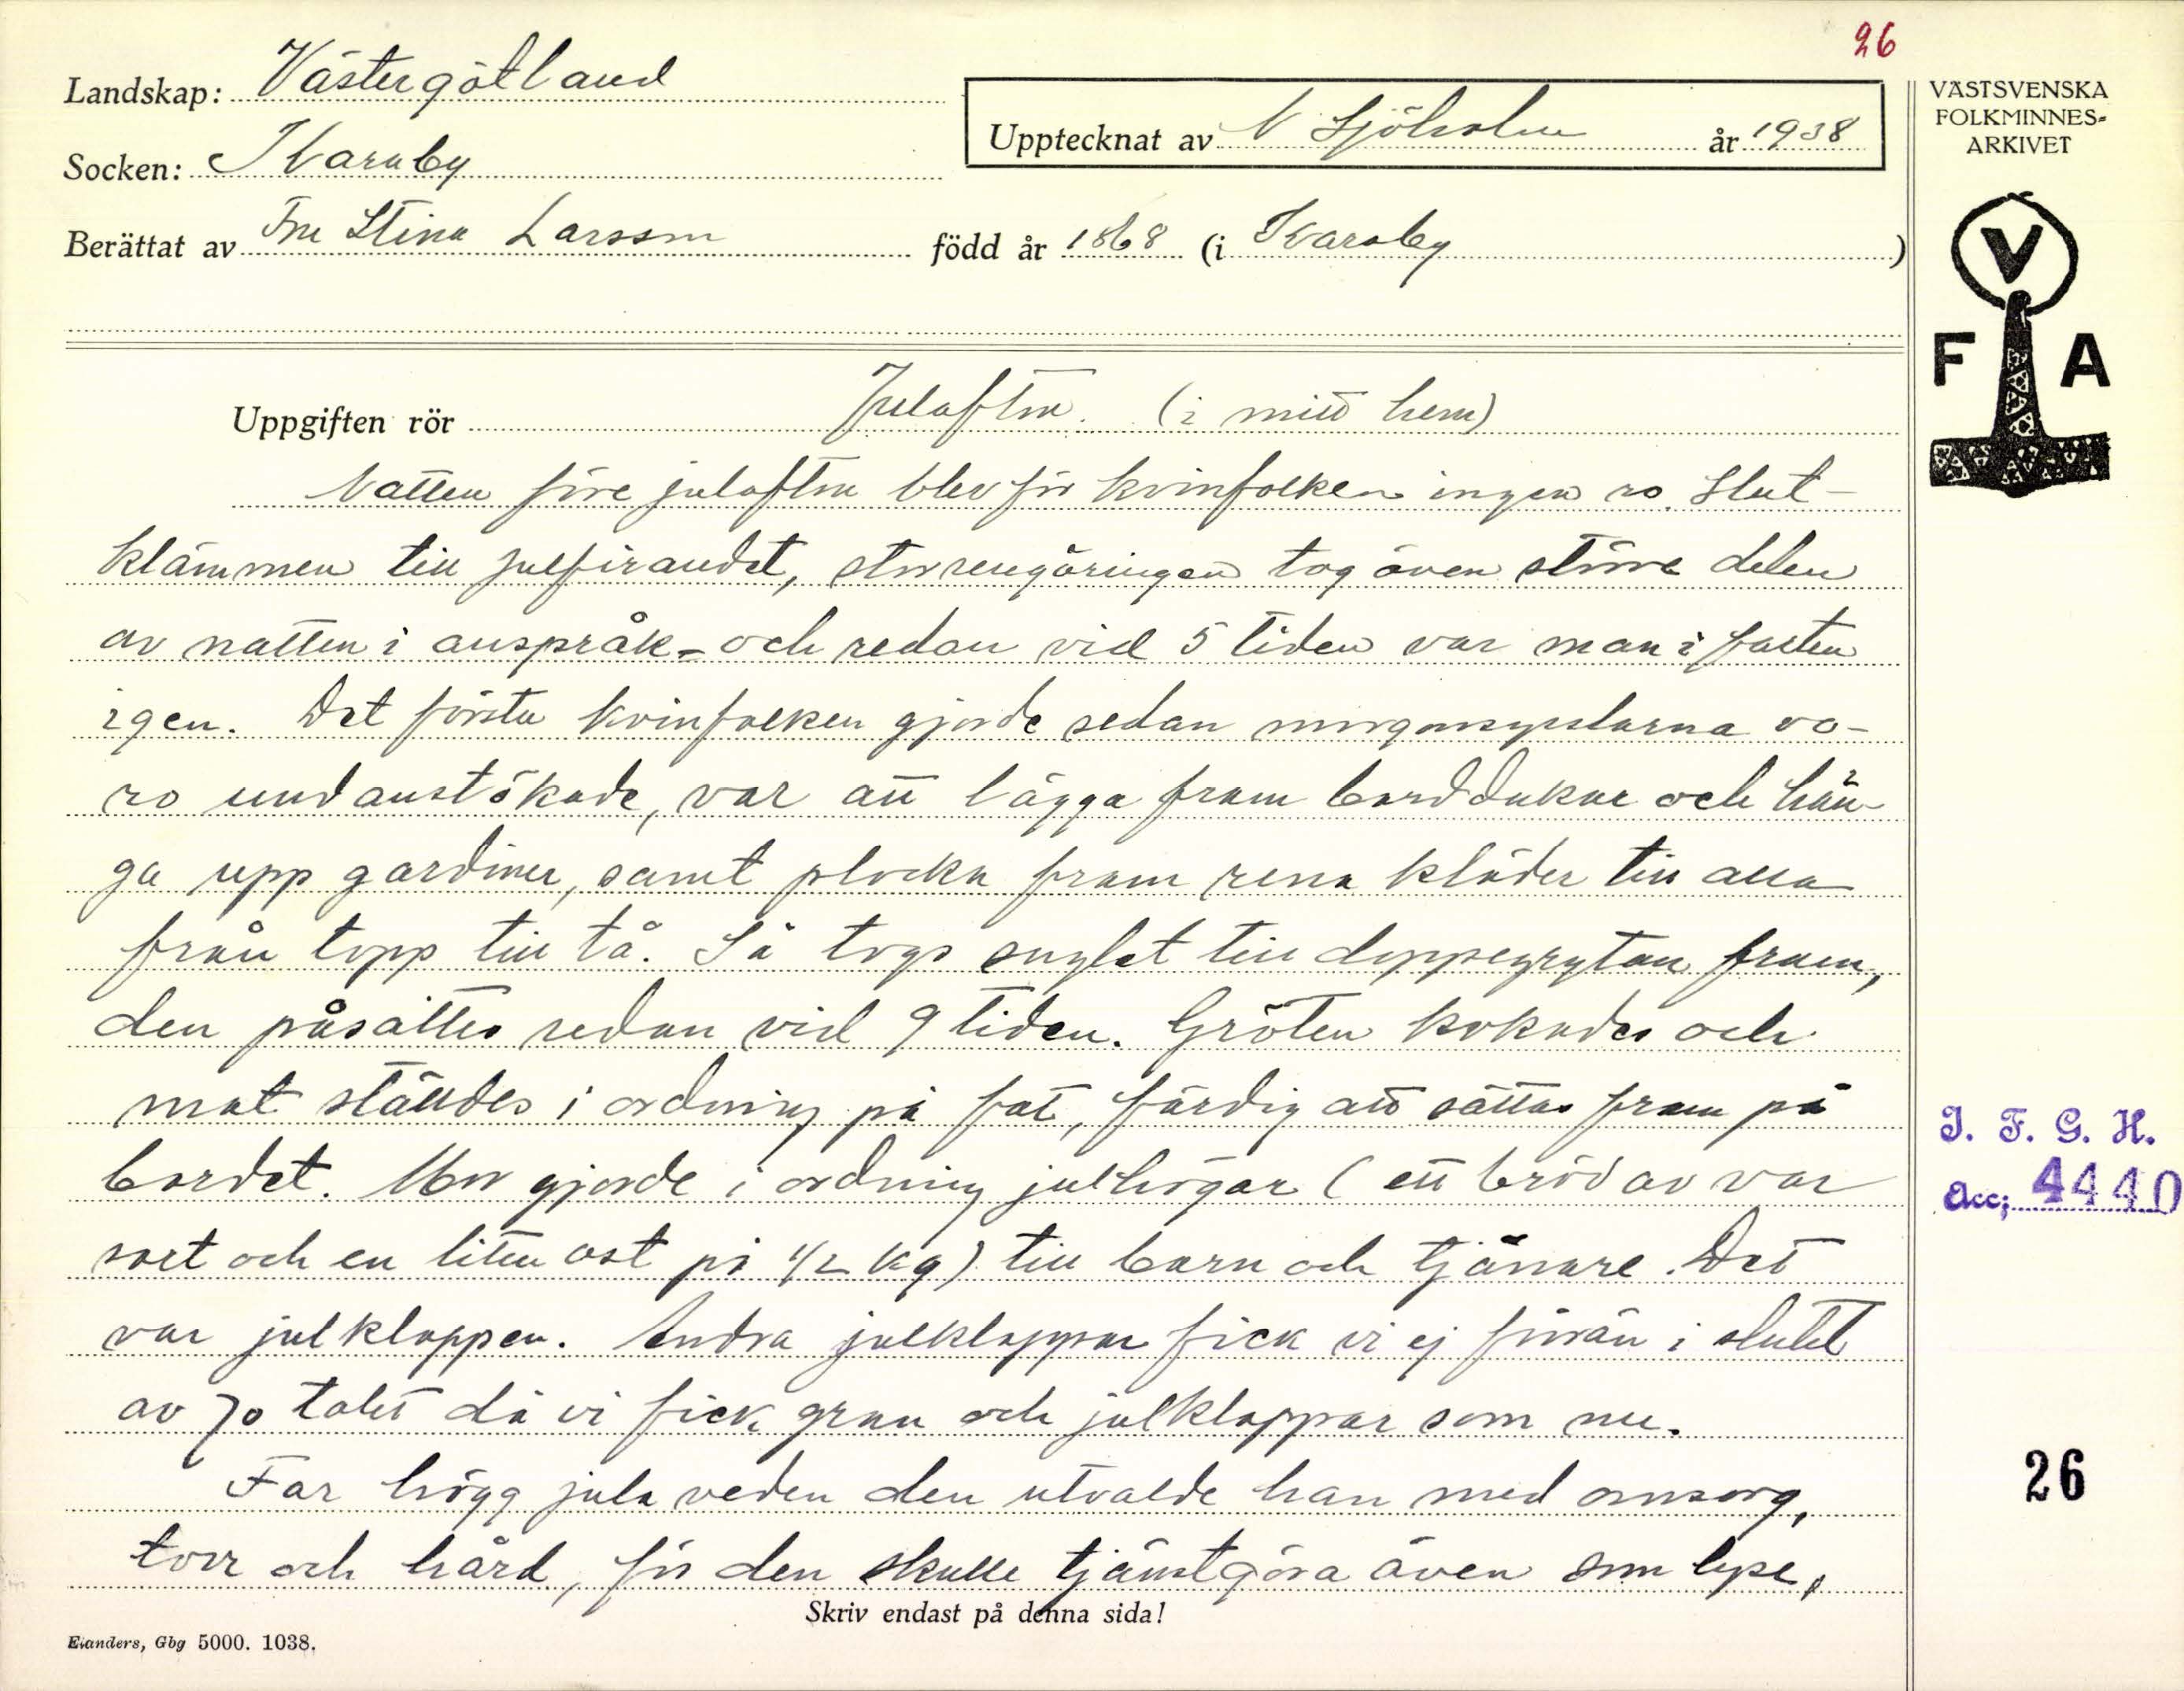 26
Landskap: Västergötland
Upptecknat av N Sjöholm år 1938
Socken: Kvarnby
Berättat av Fru Stina Larsson född år 1868 (i Kvarnby)
VÄSTSVENSKA
FOLKMINNES-
ARKIVET
V
F A
Uppgiften rör Julafton. (i mitt hem)
Natten före julafton blev för kvinfolken ingen ro. Slut-
klämmen till julfirandet, storrengöringen tog även större delen
av natten i anspråk - och redan vid 5 tiden var man i farten
igen. Det första kvinfolken gjorde sedan morgonsysslorna vo-
ro undanstökade, var att lägga fram borddukar och hän-
ga upp gardiner, samt plocka fram rena kläder till alla
från topp till tå. Så togs suglet till doppegrytan fram,
den påsattes redan vid 9 tiden. Gröten kokades och
mat ställdes i ordning på fat, färdig att sättas fram på
bordet. Mor gjorde i ordning julhögar (ett bröd av var
sort och en liten ost på 1/2 kg) till barn och tjänare. Det
var julklappen. Andra julklappar fick vi ej förrän i slutet
av 70 talet då vi fick gran och julklappar som nu.
Far högg jula veden den utvalde han med omsorg,
torr och hård, för den skulle tjänstgöra även som lyse,
Skriv endast på denna sida!
Elanders, Gbg 5000. 1038.
I. F. G. H.
Acc; 4440
26